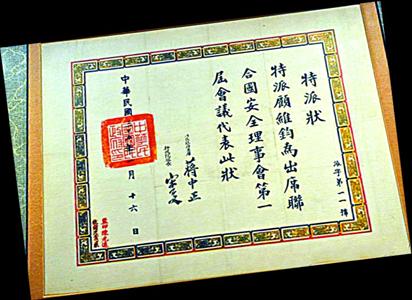 特派狀
派字第一一號
特派顧維鈞為出席聯
合國安全理事會第一
屆會議代表此狀
蔣中正
中華民國
月十六日